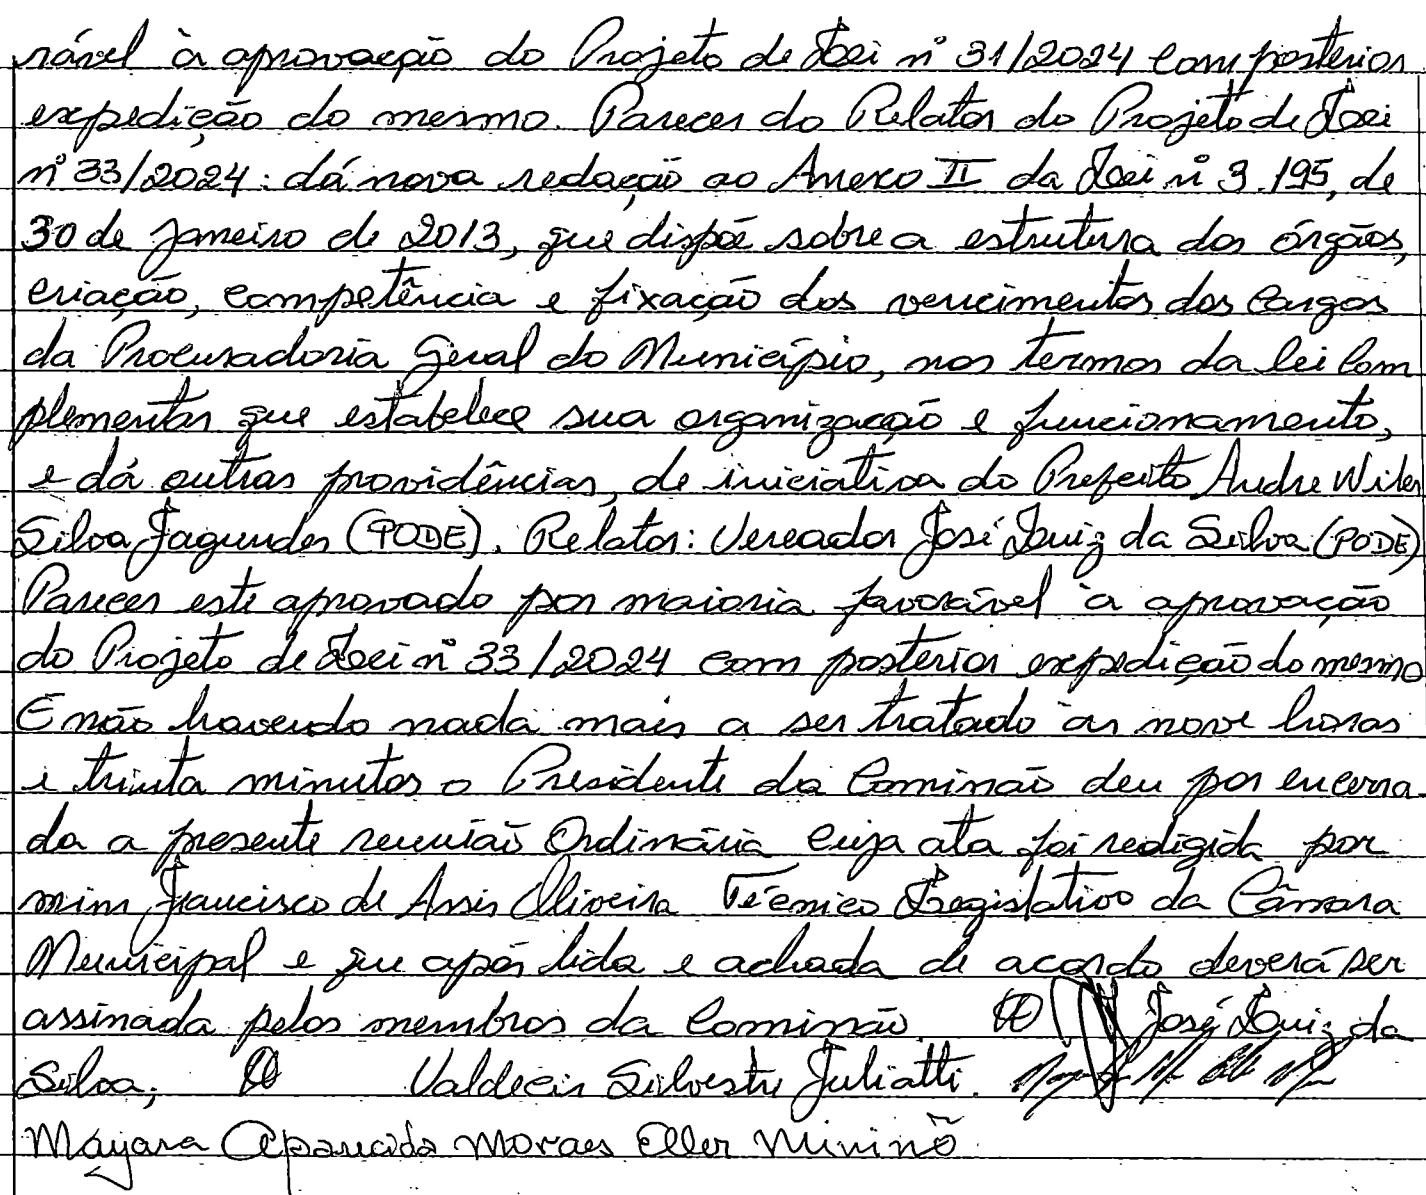 rável à aprovação do Projeto de Lei nº 31/2024 com posterior
expedição do mesmo. Parecer do Relator do Projeto de Lei
nº 33/2024: dá nova redação ao Anexo II da Lei nº 3.195, de
30 de janeiro de 2013, que dispõe sobre a estrutura dos órgãos,
criação, competência e fixação dos vencimentos dos cargos
da Procuradoria Geral do Município, nos termos da lei Com
plementar que estabelece sua organização e funcionamento,
e dá outras providências, de iniciativa do Prefeito Andre Wiler
Silva Fagundes (PODE). Relator: Vereador José Luiz da Silva (PODE)
Parecer este aprovado por maioria favorável à aprovação
do Projeto de Lei nº 33/2024 com posterior expedição do mesmo
E não havendo nada mais a ser tratado às nove horas
e trinta minutos o Presidente da Comissão deu por encerra
da a presente reunião Ordinária cuja ata foi redigida por
mim Francisco de Assis Oliveira Técnico Legislativo da Câmara
Municipal e que após lida e achada de acordo deverá ser
assinada pelos membros da Comissão. José Luiz da
Silva; Valdecir Silvestre Juliatti.
Mayara Aparecida Moraes Eller Mininô